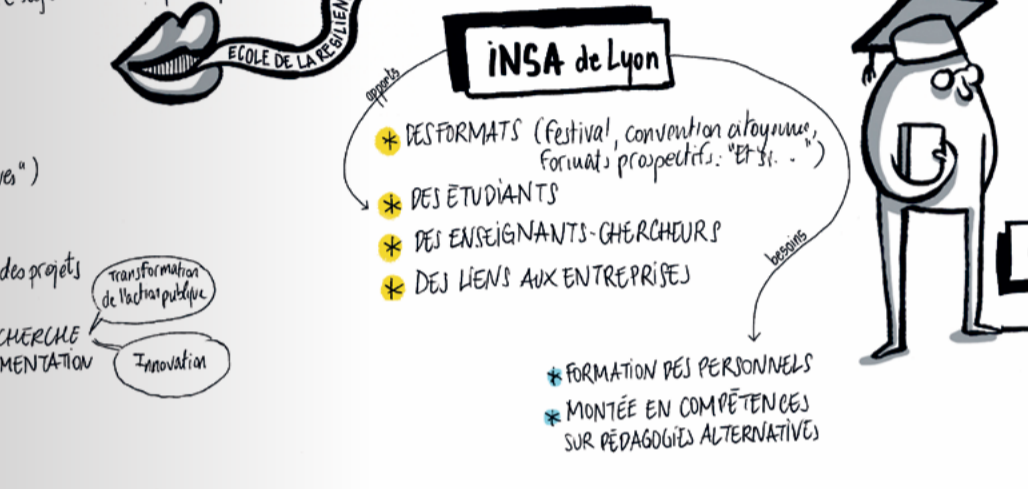 ECOLE DE LA RÉSILIEN
INSA de Lyon
apports
* DES FORMATS (festival, convention citoyenne,
formats prospectifs: "Et si...")
* DES ÉTUDIANTS
* DES ENSEIGNANTS-CHERCHEURS
* DES LIENS AUX ENTREPRISES
besoins
* FORMATION DES PERSONNELS
* MONTÉE EN COMPÉTENCES
SUR PÉDAGOGIES ALTERNATIVES
des projets
Transformation
de l'action publique
CHERCHE
MENTATION
Innovation